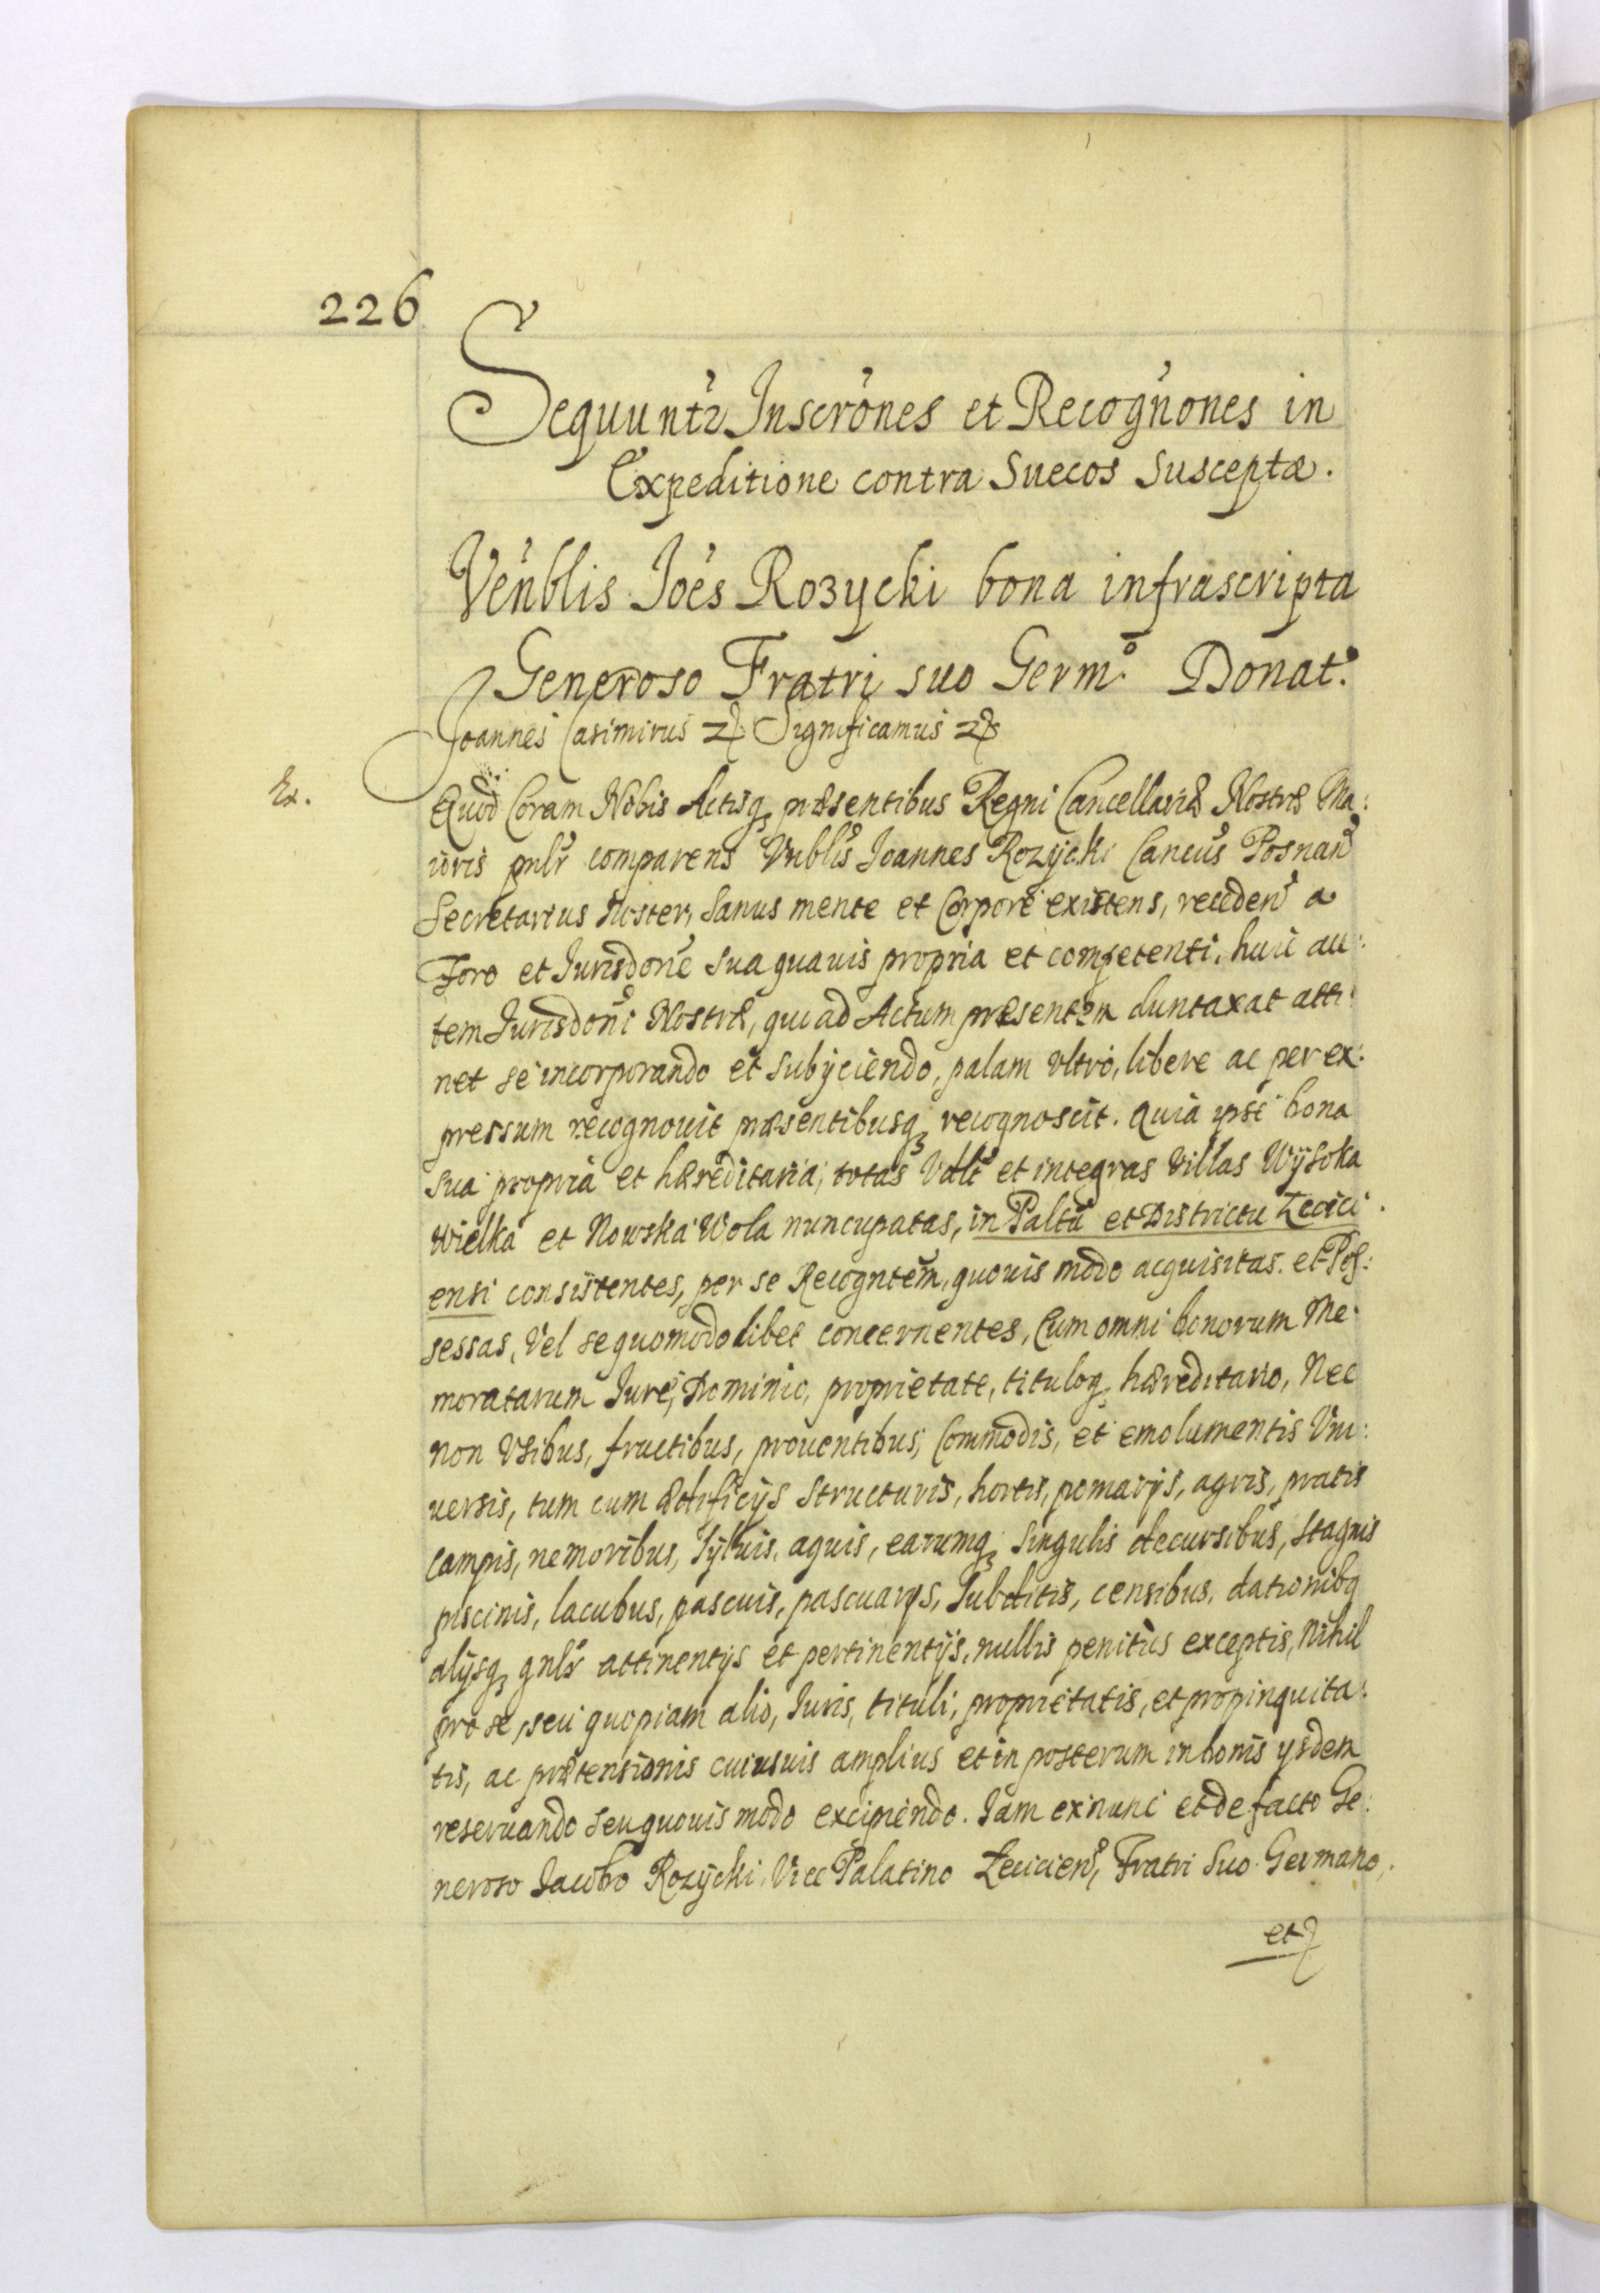 226
Sequuntr Inscrones et Recognones in
Expeditione contra Suecos Susceptæ.
Venblis Joes Rozycki bona infrascripta
Generoso Fratri suo Germo. Donat.
Joannes Casimirus Significamus
Ex.
Quod Coram Nobis Actisq præsentibus Regni Cancellariæ Nostræ Ma:
ioris pnlr comparens Vnblis Joannes Rozycki Cancus Posnan
Secretarius Noster, Sanus mente et Corpore existens, receden a
Foro et Jurisdone sua quauis propria et competenti, huic au:
tem Jurisdoni Nostræ, quo ad Actum præsentem duntaxat atti:
net se incorporando et subyciendo, palam Vltro, libere ac per ex:
pressum recognouit præsentibusq recognoscit. Quia ipse bona
sua propria et hæreditaria, totas Vdlt et integras Villas Wysoka
Wielka et Nowska Wola nuncupatas, in Paltu et Districtu Lecici
ensi consistentes, per se Recogntem, quouis modo acquisitas. et Pos:
sessas, Vel se quomodolibet concernentes, Cum omni bonorum Me:
moratarum Jure, Dominio, proprietate, tituloq hæreditario, Nec
non Vsibus, fructibus, prouentibus, Commodis, et emolumentis Vni:
uersis, tum cum ædificijs structuris, hortis, pomarijs, agris, pratis
campis, nemoribus, Syluis, aquis, earumq singulis decursibus, stagnis
piscinis, lacubus, pascuis, pascuarijs, Subditis, censibus, dationibq
alijsq gnlr attinentijs et pertinentijs, nullis penitus exceptis, Nihil
pro se, seu quopiam alio, Juris, tituli, proprietatis, et propinquita:
tis, ac prætensionis cuiusuis amplius et in posterum in bonis ysdem
reseruando seu quouis modo excipiendo. Jam ex nunc et de facto Ge:
neroso Jacobo Rozycki, Vice Palatino Lecicien, Fratri Suo Germano,
et